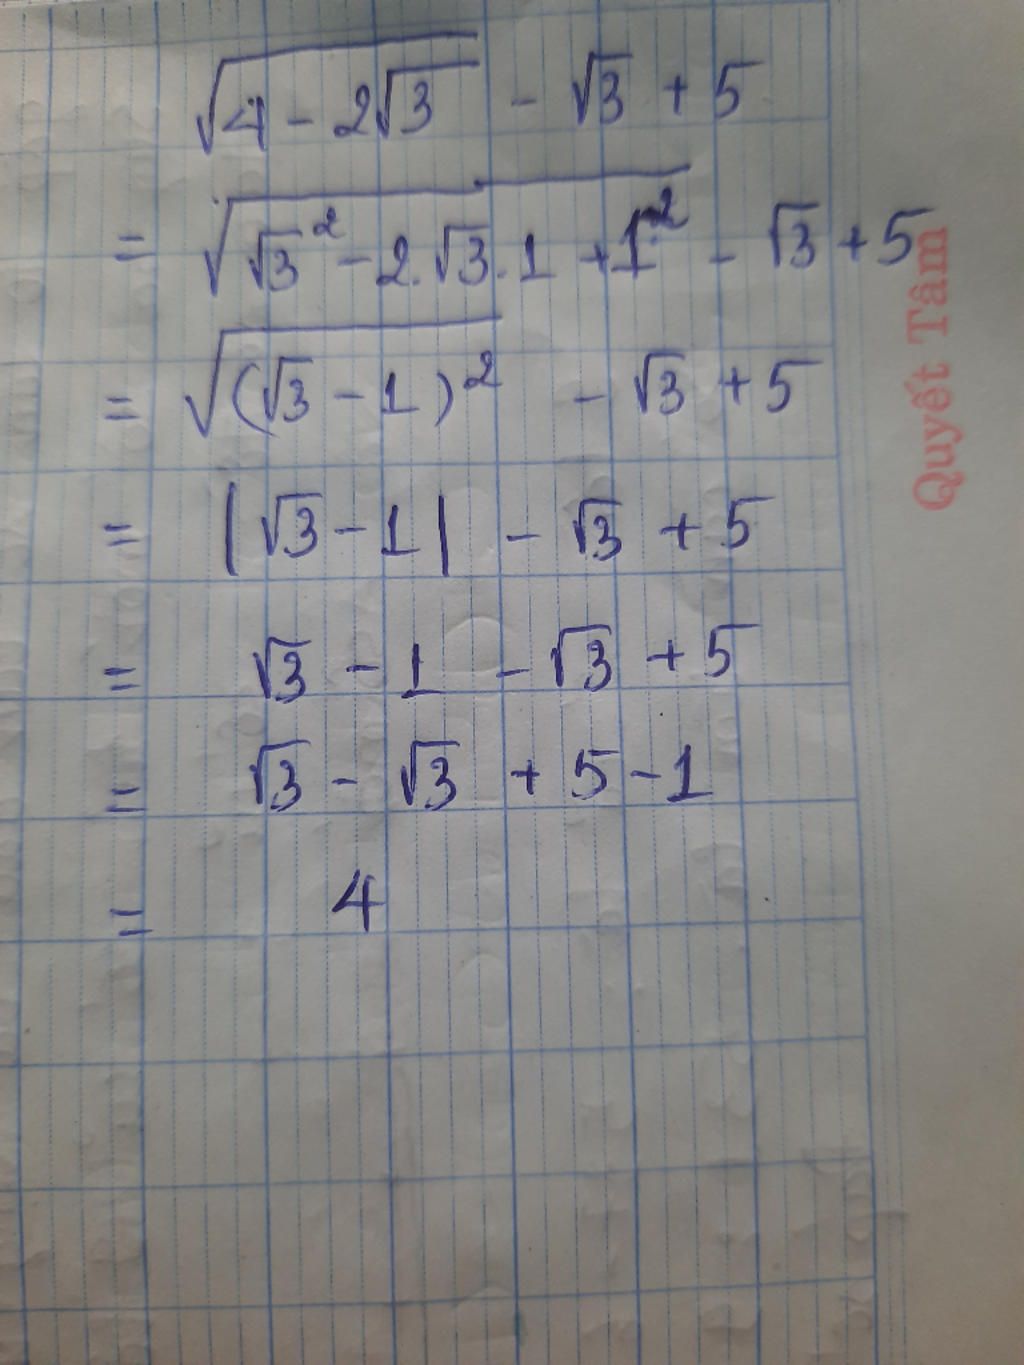 √(4 - 2√3) - √3 + 5
= √(√3² - 2.√3.1 + 1²) - √3 + 5
= √((√3 - 1)²) - √3 + 5
= |√3 - 1| - √3 + 5
= √3 - 1 - √3 + 5
= √3 - √3 + 5 - 1
= 4
Quyết Tâm